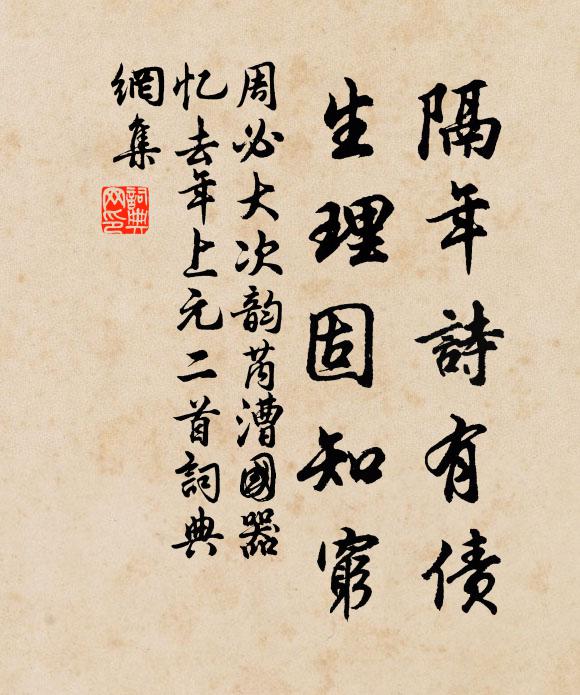 隔年詩有債
生理固知窮
周必大次韵芮漕國器
忆去年上元二首詞典
網集
詞典
网印